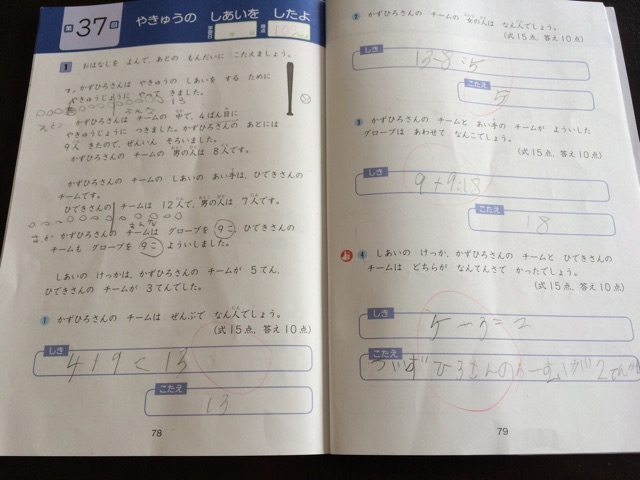 第37回 やきゅうの しあいを したよ
1 おはなしを よんで、あとの もんだいに こたえましょう。
かずひろさんは やきゅうの しあいを する ために
やきゅうじょうに やって きました。
13
かずひろさんは チームの 中で、4ばん目に
やきゅうじょうに つきました。かずひろさんの あとには
9人 きたので、ぜんいん そろいました。
かずひろさんの チームの 男の人は 8人です。
かずひろさんの チームの しあいの あい手は、ひできさんの
チームです。
ひできさんの チームは 12人で、男の人は 7人です。
かずひろさんの チームは グローブを 9こ、ひできさんの
チームも グローブを 9こ よういしました。
しあいの けっかは、かずひろさんの チームが 5てん、
ひできさんの チームが 3てんでした。
1 かずひろさんの チームは ぜんぶで なん人でしょう。
(式15点、答え10点)
しき
4+9<13
こたえ
13
78
2 かずひろさんの チームの 女の人は なん人でしょう。
(式15点、答え10点)
しき
13-8=5
こたえ
5
3 かずひろさんの チームと あい手の チームが よういした
グローブは あわせて なんこでしょう。
(式15点、答え10点)
しき
9+9=18
こたえ
18
4 しあいの けっか、かずひろさんの チームと ひできさんの
チームは どちらが なんてんさで かったでしょう。
(式15点、答え10点)
しき
5-3=2
こたえ
79